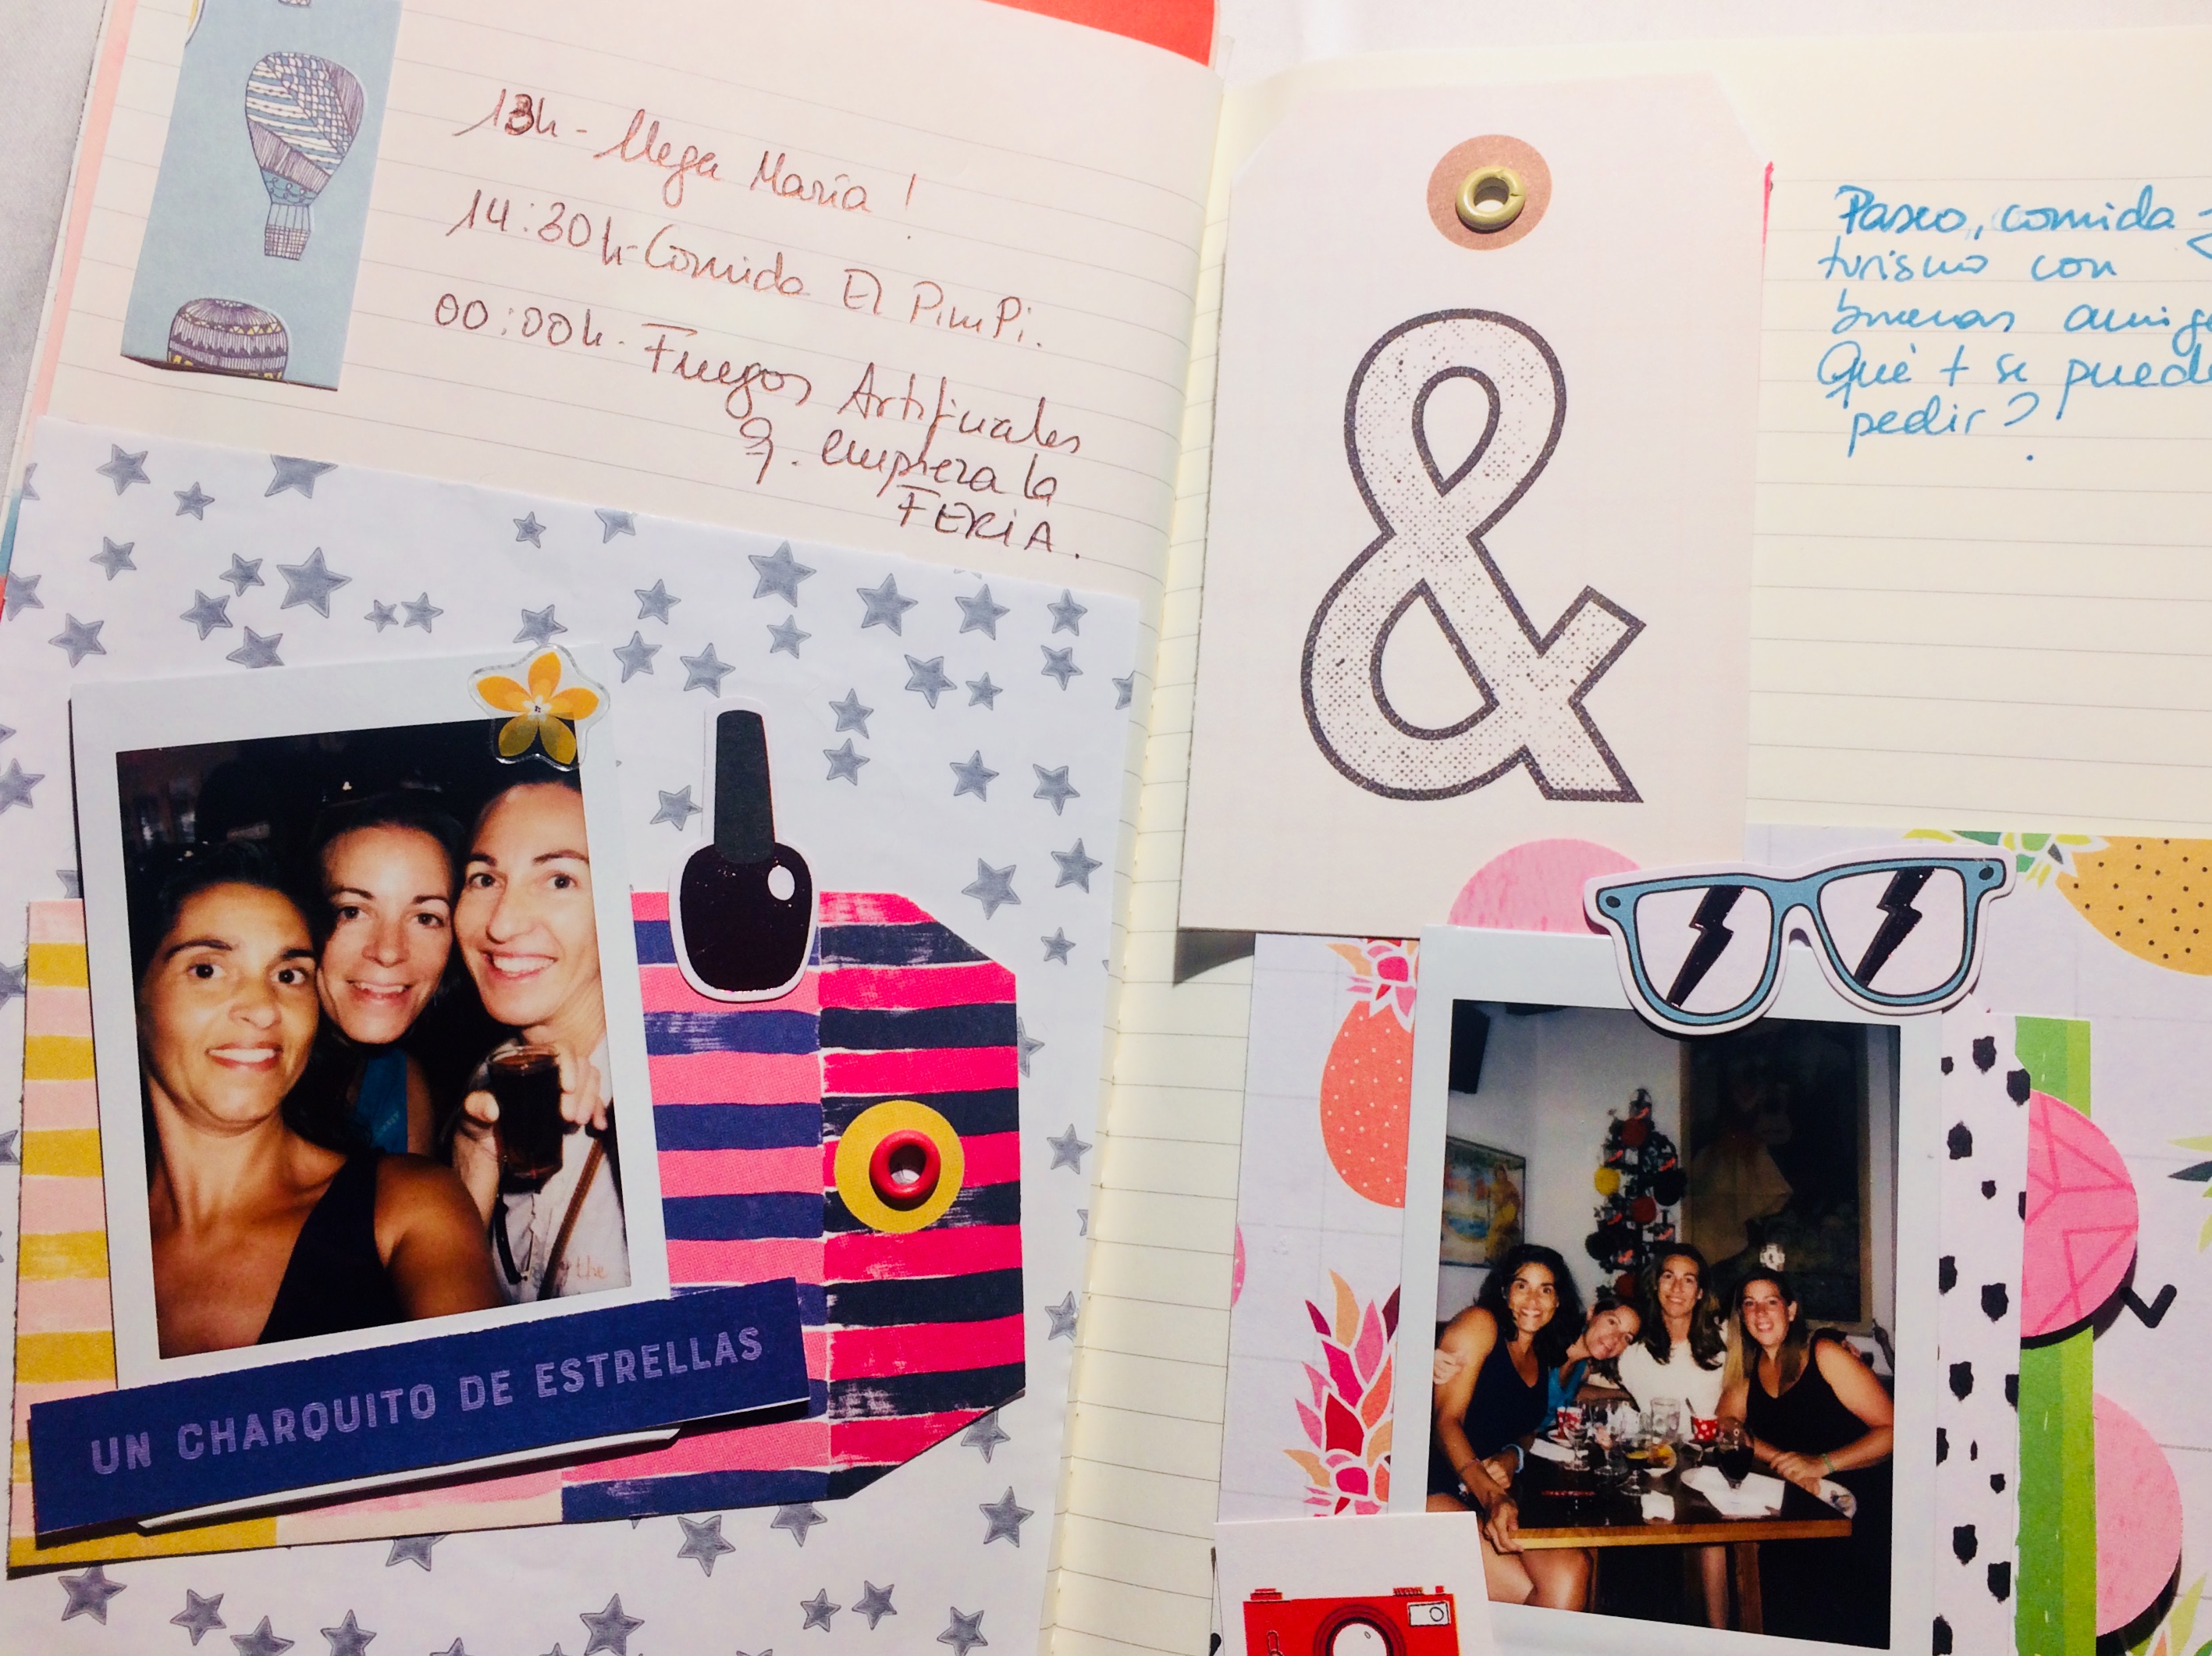 13h - llega María !
14:30h - Comida El PimPi.
00:00h - Fuegos Artificiales
q. empieza la
FERiA.
UN CHARQUITO DE ESTRELLAS
the
&
Paseo, comida
turismo con
buenas
Qué + se
pedir?